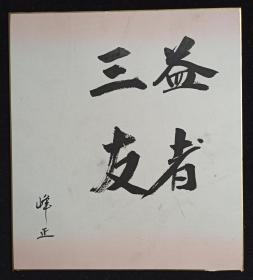 益者
三友
峰正